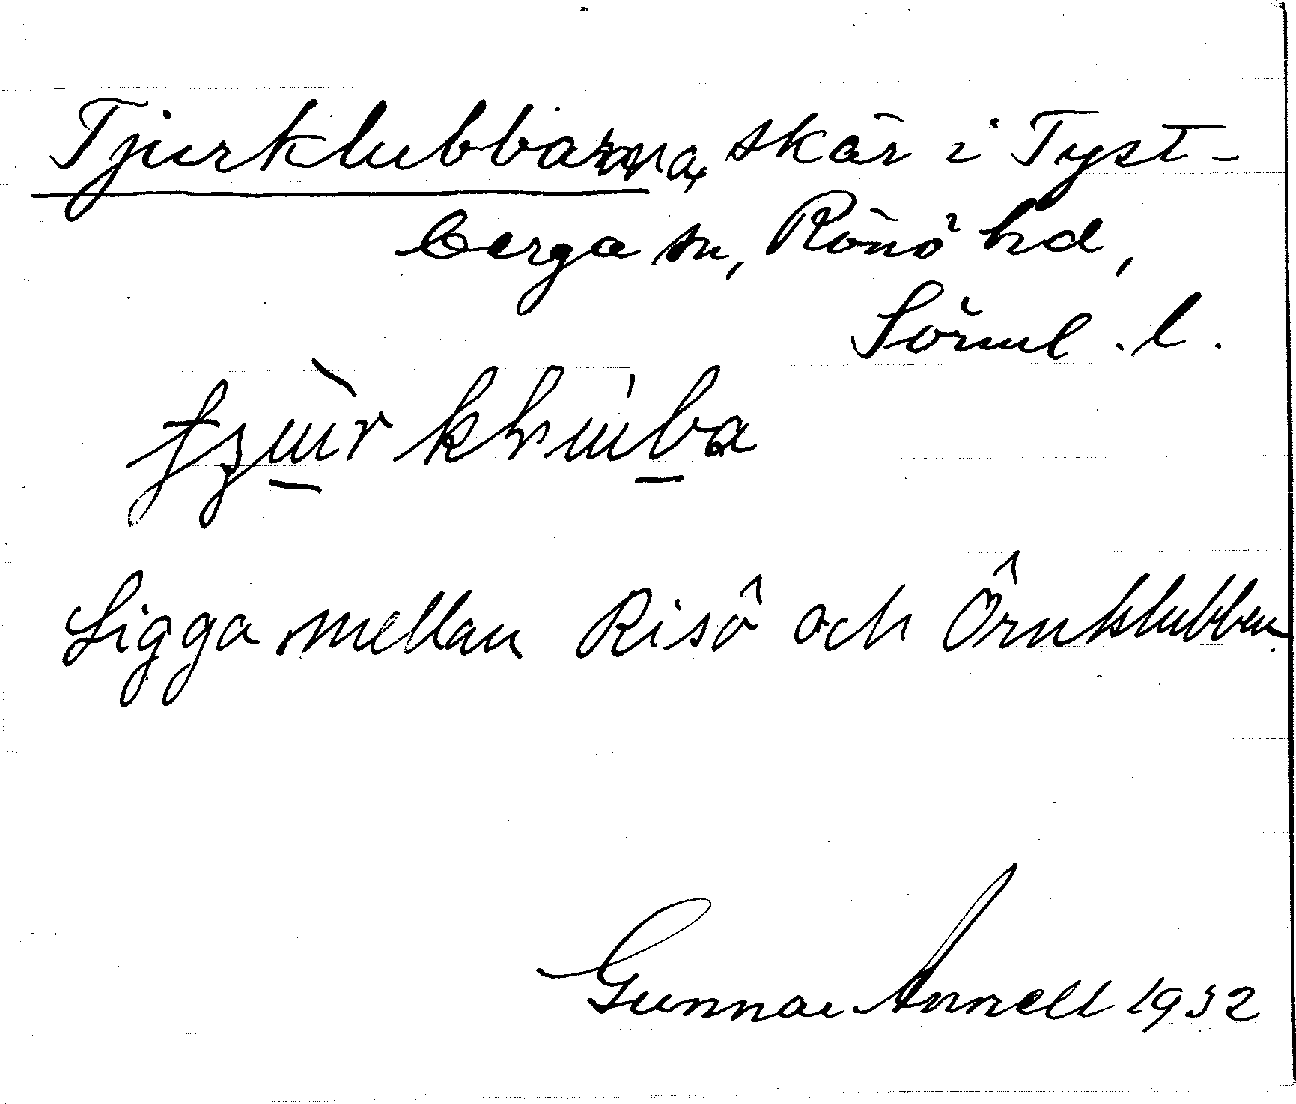 Tjurklubbarna, skär i Tyst-
berga sn, Rönö hd,
Sörml. l.
Ligga mellan Risö och Örnklubben.
Gunnar Annell 1932